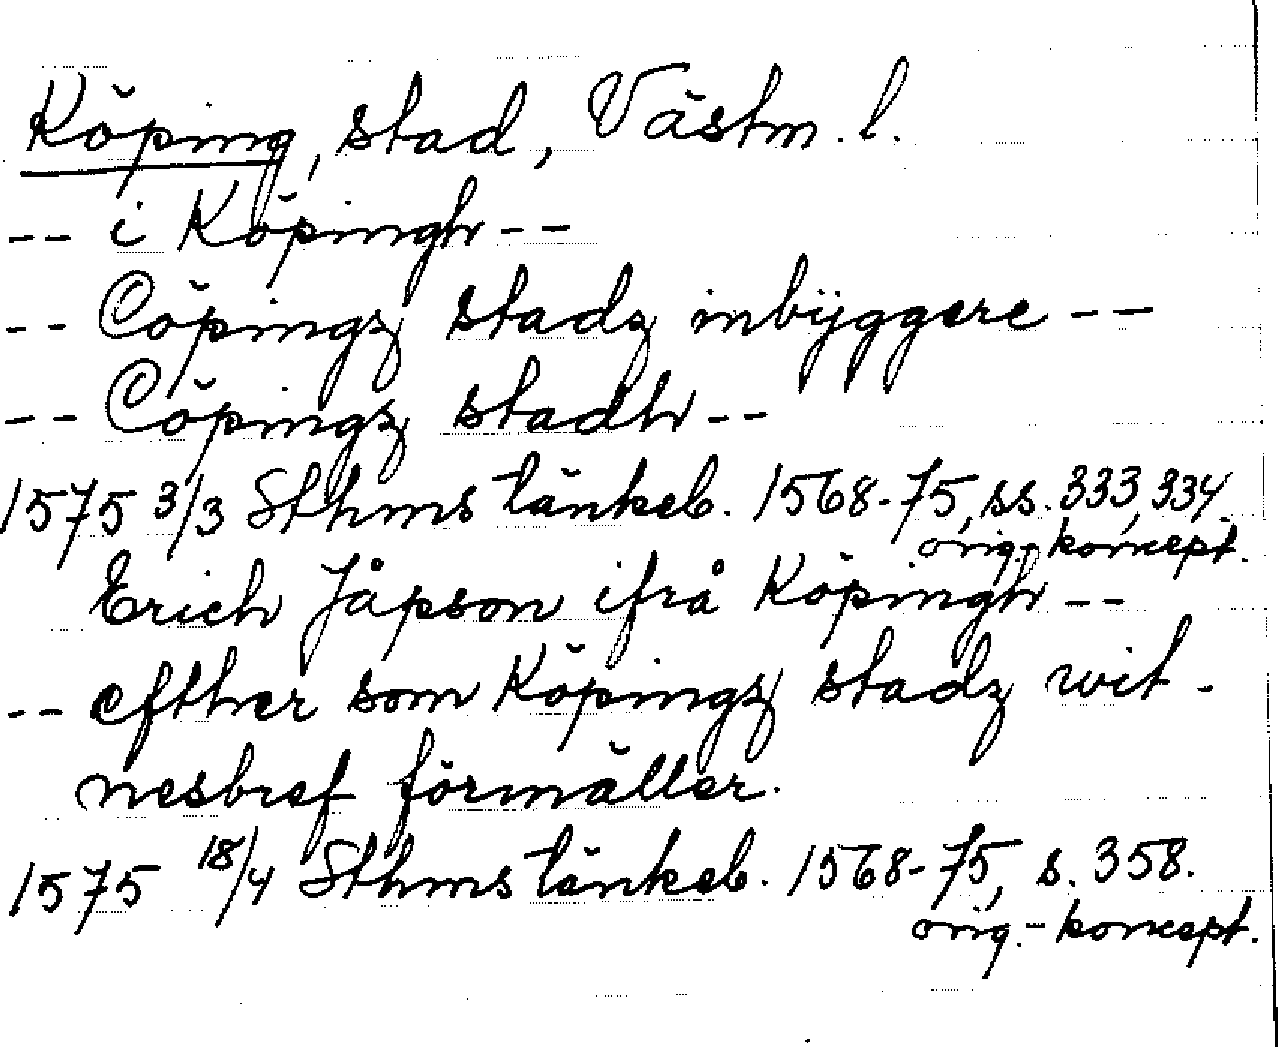 Köping, stad, Västm. l.
-- i Köpingh --
-- Cöpingz stadz inbÿggere --
-- Cöpingz stadh --
1575 3/3 Sthms tänkeb. 1568-75, ss. 333, 334.
orig.-koncept.
Erich Jåpson ifrå Köpingh --
-- effther som Köpingz stadz wit-
nesbref förmäller.
1575 18/4 Sthms tänkeb. 1568-75, s. 358.
orig.-koncept.